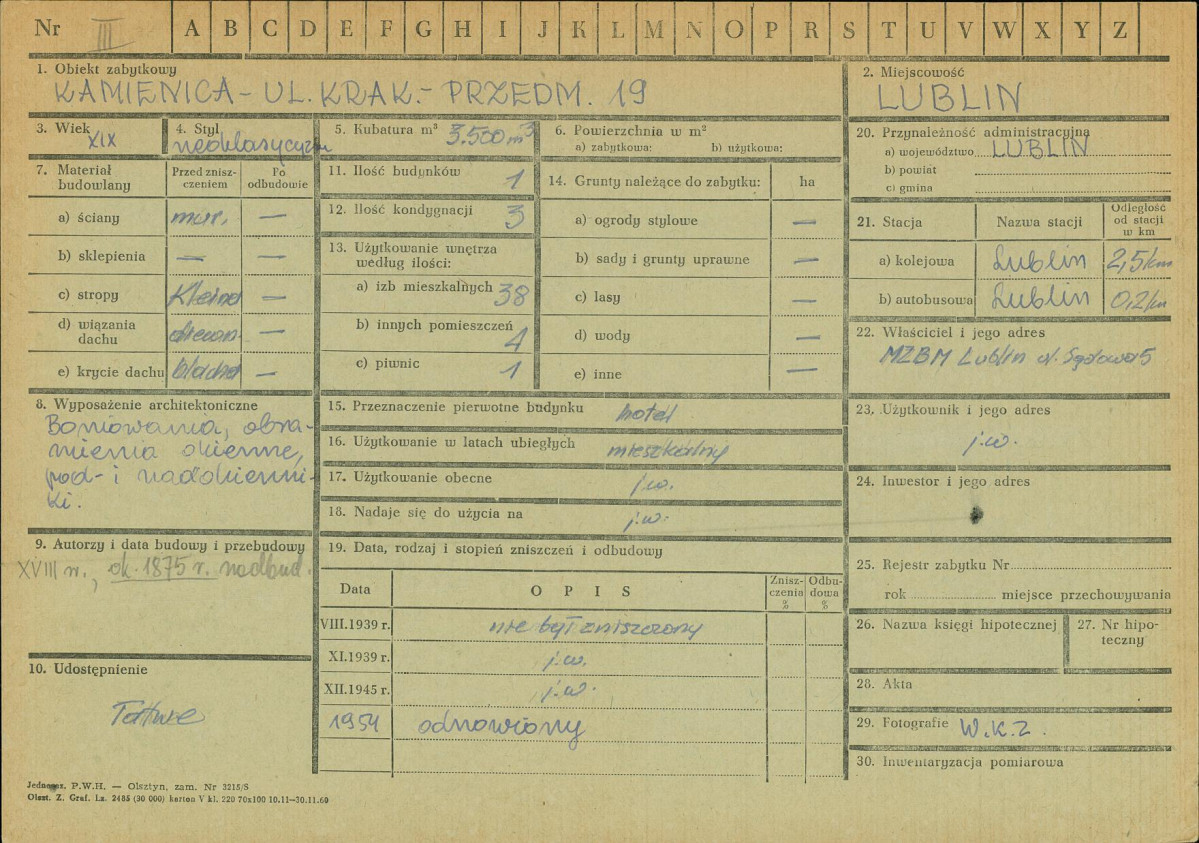 Nr III A B C D E F G H I J K L M N O P R S T U V W X Y Z
1. Obiekt zabytkowy
KAMIENICA - UL. KRAK.- PRZEDM. 19
2. Miejscowość
LUBLIN
3. Wiek
XIX
4. Styl
neoklasycyzm
5. Kubatura m³ 3.500 m³
6. Powierzchnia w m²
a) zabytkowa: b) użytkowa:
7. Materiał budowlany
Przed zniszczeniem
Po odbudowie
a) ściany mur. —
b) sklepienia — —
c) stropy Kleina —
d) wiązania dachu drewn. —
e) krycie dachu blacha —
8. Wyposażenie architektoniczne
Boniowania, obra-
mienia okienne,
pod- i nadokienni-
ki.
9. Autorzy i data budowy i przebudowy
XVIII w., ok. 1875 r. nadbud.
10. Udostępnienie
Łatwe
11. Ilość budynków 1
12. Ilość kondygnacji 3
13. Użytkowanie wnętrza
według ilości:
a) izb mieszkalnych 38
b) innych pomieszczeń 4
c) piwnic 1
14. Grunty należące do zabytku: ha
a) ogrody stylowe —
b) sady i grunty uprawne —
c) lasy —
d) wody —
e) inne —
15. Przeznaczenie pierwotne budynku hotel
16. Użytkowanie w latach ubiegłych mieszkalny
17. Użytkowanie obecne j.w.
18. Nadaje się do użycia na j.w.
19. Data, rodzaj i stopień zniszczeń i odbudowy
Data OPIS Zniszczenia % Odbudowa %
VIII.1939 r. nie był zniszczony
XI.1939 r. j.w.
XII.1945 r. j.w.
1954 odnowiony
20. Przynależność administracyjna
a) województwo LUBLIN
b) powiat
c) gmina
21. Stacja Nazwa stacji Odległość od stacji w km
a) kolejowa Lublin 2,5 km
b) autobusowa Lublin 0,2 km
22. Właściciel i jego adres
MZBM Lublin ul. Sądowa 5
23. Użytkownik i jego adres
j.w.
24. Inwestor i jego adres
25. Rejestr zabytku Nr
rok miejsce przechowywania
26. Nazwa księgi hipotecznej
27. Nr hipo-
teczny
28. Akta
29. Fotografie W.K.Z.
30. Inwentaryzacja pomiarowa
P.W.H. — Olsztyn, zam. Nr 3215/S
Olszt. Z. Graf. Lz. 2485 (30 000) karton V kl. 220 70x100 10.11—30.11.60